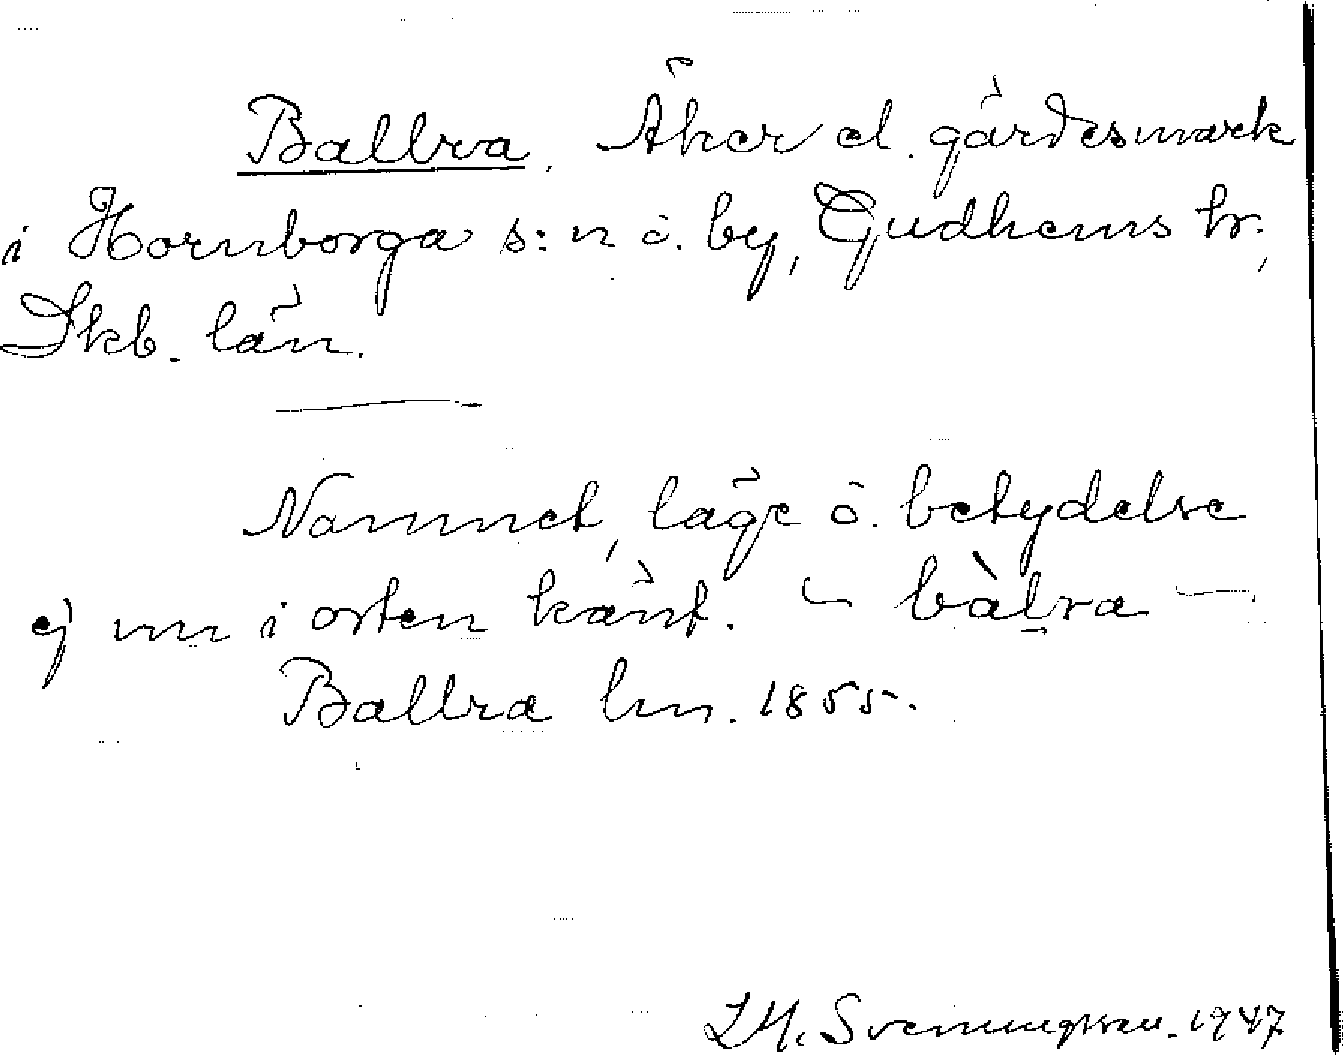 Ballra. Åker el. gärdesmark
i Hornborga s:n o. by, Gudhems hr.,
Skb. län.
Namnet, läge o. betydelse
ej nu i orten känt. – bàlra –
Ballra lm. 1855.
L.M. Svenungsson. 1947